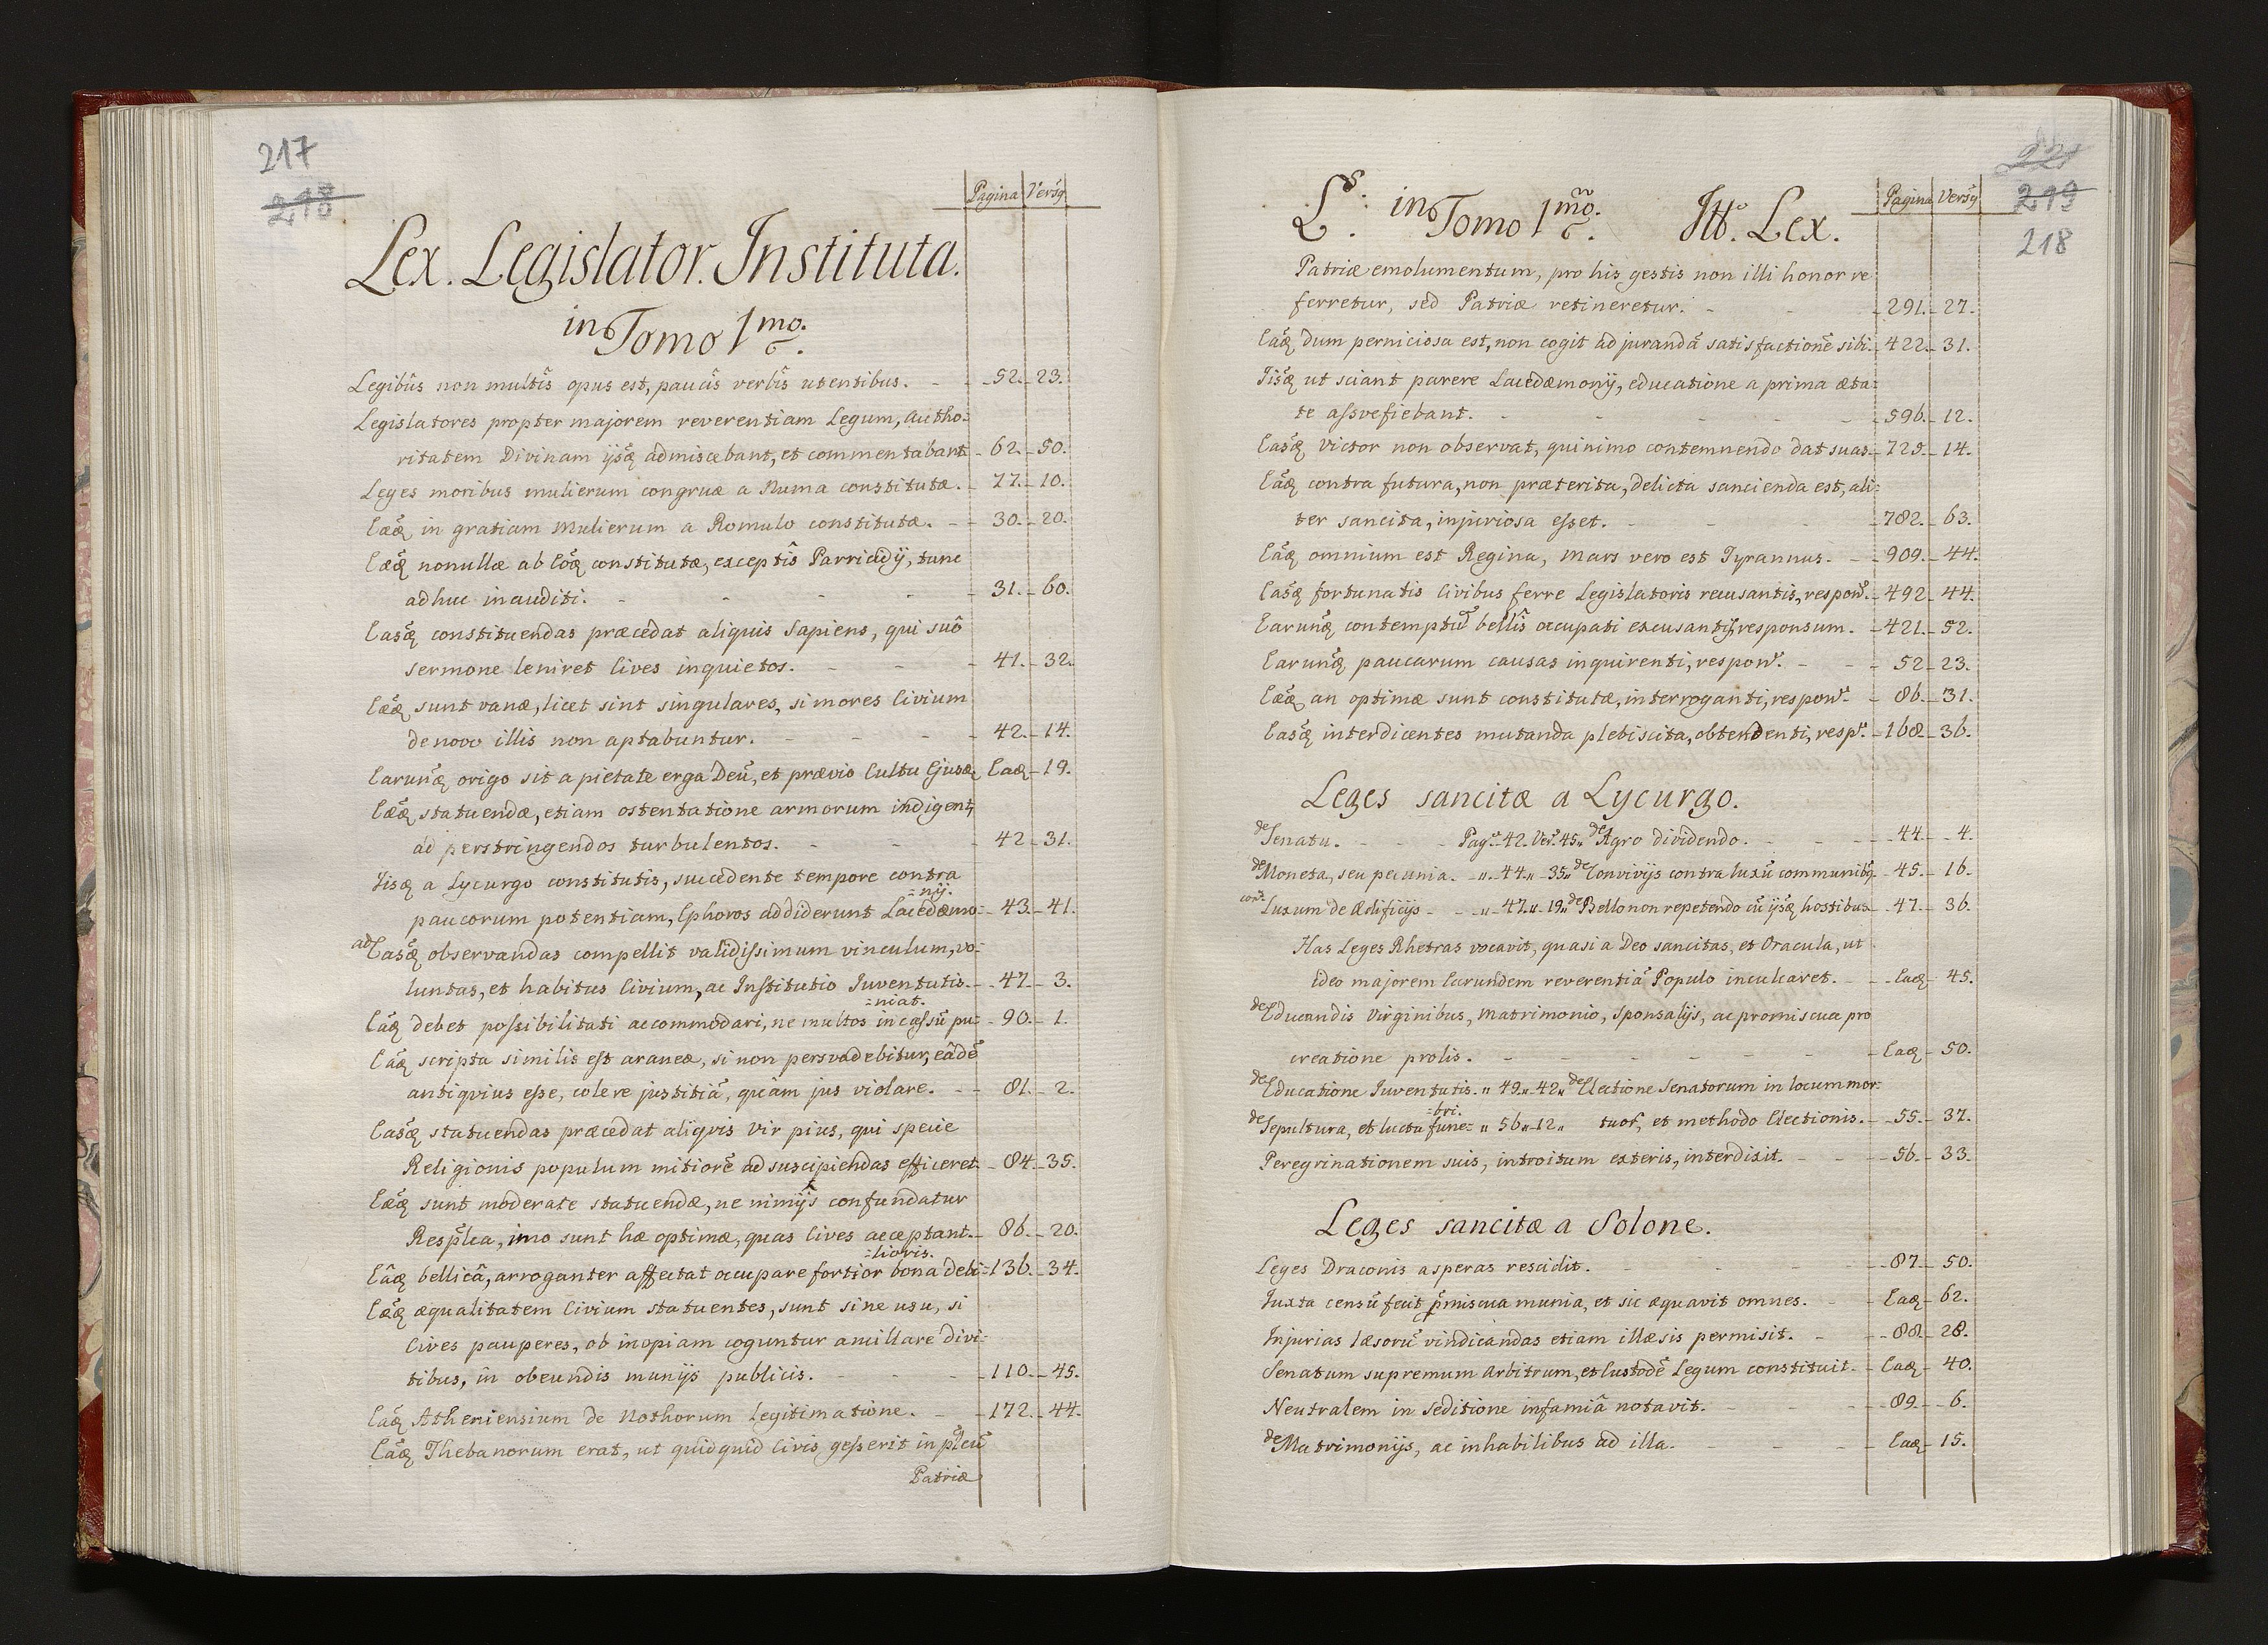 217
218
Pagina Versq
Lex. Legislator. Instituta.
in Tomo 1mo.
Legibûs non multîs opus est, paucîs verbîs utentibus. - - 52. - 23.
Legislatores propter majorem reverentiam Legum, Autho:
ritatem Divinam ijsq̃ admiscebant, et commentabant - 62. - 50.
Leges moribus mulierum congruæ a Numa constitutæ. - 77. - 10.
Eæq̃ in gratiam Mulierum a Romulo constitutæ. - - 30. - 20.
Eæq̃ nonullæ ab Eoq̃ constitutæ, exceptîs Parricidij, tunc
adhuc inauditi. - - - - - 31. - 60.
Easq̃ constituendas præcedat aliquis Sapiens, qui suô
sermone leniret Cives inquietos. - - - 41. - 32.
Eæq̃ sunt vanæ, licet sint singulares, si mores Civium
denovo illis non aptabuntur. - - - - 42. - 14.
Earunq̃ origo sit a pietate erga Deũ, et prævio Cultu Ejusdẽ, Eaq - 19.
Eæq̃ statuendæ, etiam ostentatione armorum indigent,
ad perstringendos turbulentos. - - - 42 - 31.
Jisq̃ a Lycurgo constitutis, succedente tempore contra
=nij.
paucorum potentiam, Ephoros addiderunt Lacedæmo: - 43. - 41.
ad Easq̃ observandas compellit validissimum vinculum, vo:
luntas, et habitus Civium, ac Institutio Juventutis. - 47. - 3.
=niat.
Eaq̃ debet possibilitati accommodari, ne multos incassũ pu: - 90. - 1.
Eaq̃ scripta similis est araneæ, si non persvadebitur, eâdẽ
antiqvius esse, colere justitiã, quàm jus violare. - - 81. - 2.
Easq̃ statuendas præcedat aliqvis Vir pius, qui specie
Religionis populum mitiorẽ ad suscipiendas efficeret. - 84. - 35.
Eæq̃ sunt moderate statuendæ, ne nimijs confundatur
Resp̃lca, imo sunt hæ optimæ, quas Cives acceptant. - 86. - 20.
=lioris.
Eâq bellicâ, arroganter affectat occupare fortior bona debi: - 136. - 34.
Eæq̃ æqualitatem Civium statuentes, sunt sine usu, si
Cives pauperes, ob inopiam coguntur ancillare divi:
tibus, in obeundis munijs publicis. - - - 110. - 45.
Eaq̃ Atheniensium de Nothorum Legitimatione. - - 172. - 44.
Eaq̃ Thebanorum erat, ut quidquid Civis gesserit in p̃lcũ
Patriæ
221
219
218
Ls. in Tomo 1mo. Ttt. Lex.
Pagina Versq
Patriæ emolumentum, pro his gestis non illi honor re
ferretur, sed Patriæ retineretur. - - - 291. - 27.
Eaq̃ dum perniciosa est, non cogit ad jurandã satisfactionẽ sibi. - 422. - 31.
Jisq̃ ut sciant parere Lacedæmonij, educatione a prima æta:
te assvefiebant. - - - - 596. - 12.
Easq̃ Victor non observat, quinimo contemnendo dat suas - 729. - 14.
Eaq̃ contra futura, non præterita, delicta sancienda est, ali:
ter sancita, injuriosa esset. - - - - 782. - 63.
Eaq̃ omnium est Regina, Mars vero est Tyrannus. - - 909. - 44.
Easq̃ fortunatis Civibus ferre Legislatoris recusantis, respons. - 492 - 44.
Earunq̃ contemptũ bellîs occupati excusantis, responsum. - 421. - 52.
Earunq̃ paucarum causas inquirenti, respons. - - - 52 - 23.
Eæq̃ an optimæ sunt constitutæ, interroganti, respons. - 86. - 31.
Easq̃ interdicentes mutanda plebiscita, obtendenti, resp. - 168. - 36.
Leges sancitæ a Lycurgo.
de Senatu. - - - Pag. 42. Ver. 45,, de Agro dividendo. - - - - 44. - 4.
de Moneta, seu pecunia. - ,, - 44,, - 35,, de Convivijs contra luxũ communibq. - 45. - 16.
cont. Luxum de Ædificijs - - - ,, - 47,, - 19,, de Bello non repetendo cũ ijsq̃ hostibus - 47. - 36.
Has Leges Rhetras vocavit, quasi a Deo sancitas, et Oracula, ut
ideo majorem Earundem reverentiã Populo inculcaret. - - Eaq - 45.
de Educandis Virginibus, Matrimonio, Sponsalijs, ac promiscua pro
creatione prolis. - - - - - - Eaq - 50.
de Educatione Juventutis. ,, 49,, - 42,, de Electione Senatorum in locum mor:
=bri.
de Sepultura, et luctu fune= ,, 56,, - 12,, tuor, et methodo Electionis. - 55. - 37.
Peregrinationem suis, introitum exteris, interdixit. - - - 56. - 33.
Leges sancitæ a Solone.
Leges Draconis asperas rescidit. - - - - 87. - 50.
Juxta censũ fecit p̃miscua munia, et sic æquavit omnes. - - Eaq - 62.
Injurias læsorũ vindicandas etiam illæsis permisit. - - - 88. - 28.
Senatum supremum Arbitrum, et Custodẽ Legum constituit. - Eaq - 40.
Neutralem in seditione infamiâ notavit. - - - - 89. - 6.
de Matrimonijs, ac inhabilibus ad illa. - - - Eaq - 15.